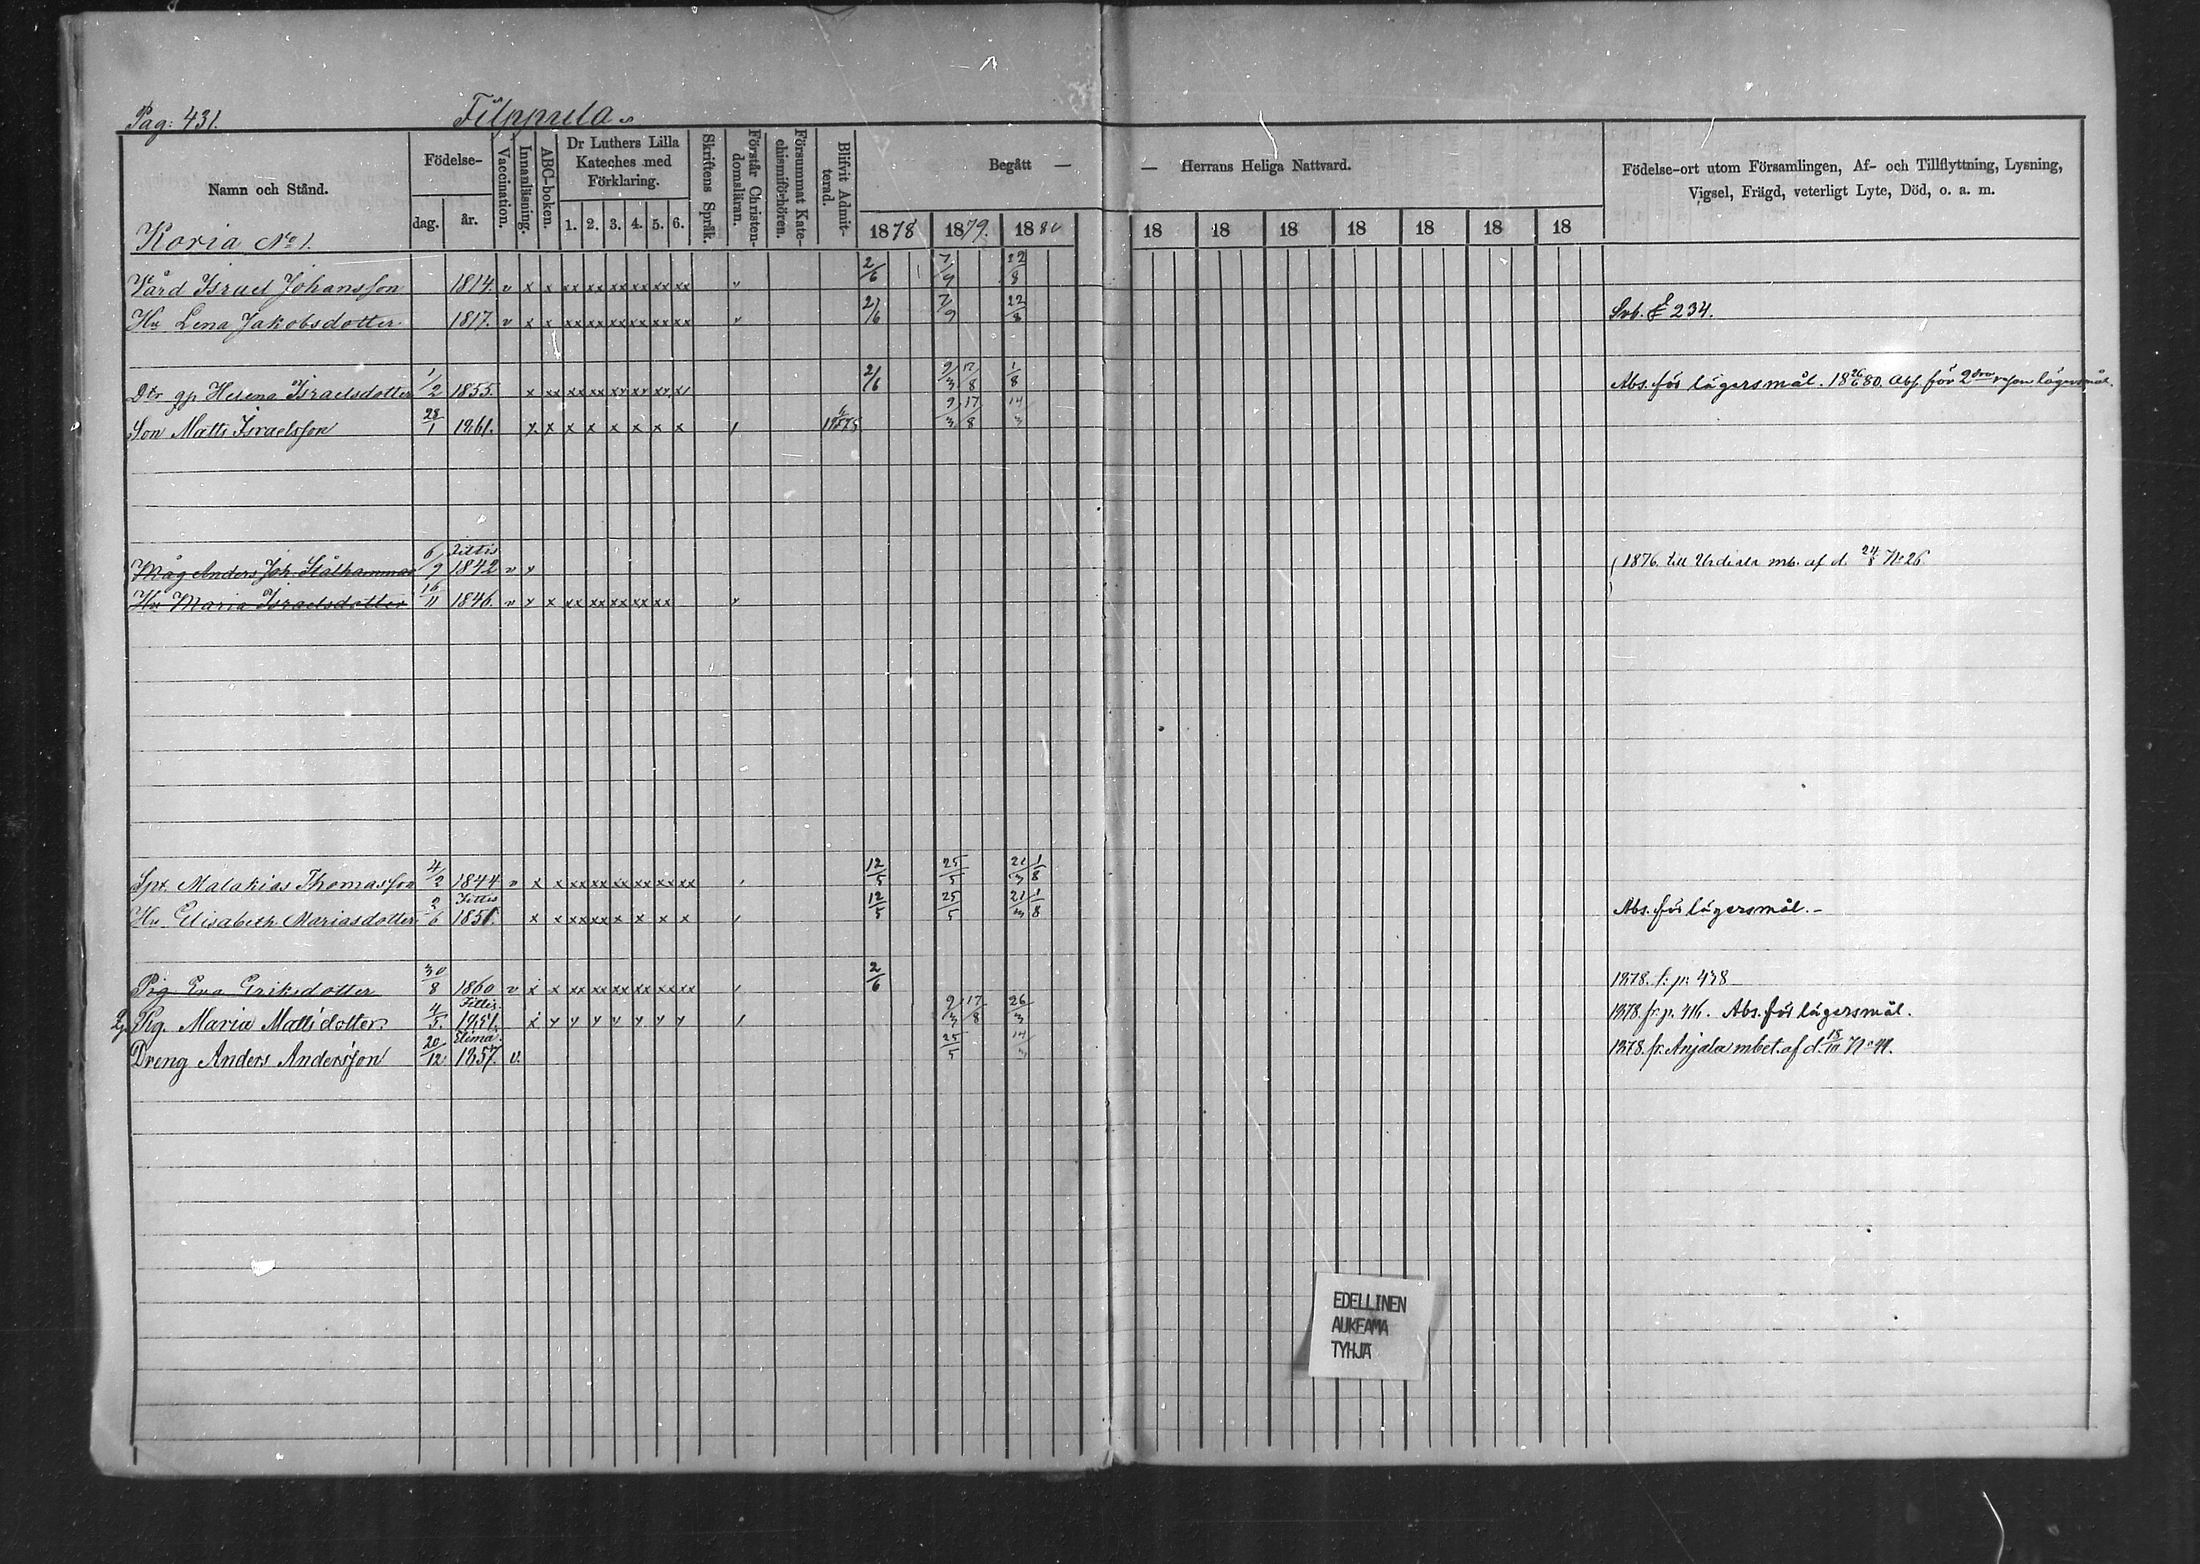 Pag: 431. Filppula.
Namn och Stånd.
Födelse-
dag. år.
Vaccination.
Innanläsning.
ABC-boken.
Dr Luthers Lilla
Kateches med
Förklaring.
1. 2. 3. 4. 5. 6.
Skriftens Språk.
Förstår Christen-
domsläran.
Försummat Kate-
chismiförhören.
Blifvit Admit-
terad.
Begått — — Herrans Heliga Nattvard.
1878 1879. 1880 18 18 18 18 18 18 18
Födelse-ort utom Församlingen, Af- och Tillflyttning, Lysning,
Vigsel, Frägd, veterligt Lyte, Död, o. a. m.
Koria No 1.
Vård Israel Johansson 1814. v x x xx xx xx xx xx xx v 2/6 7/9 22/8
Hu Lena Jakobsdotter 1817. v x x xx xx xx xx xx xx v 2/6 7/9 22/8 234.
Dtr gp Helena Israelsdotter 1/2 1855. x xx xx xx xx xx xx 2/6 9/3 17/8 1/8 Abs. för lägersmål. 18 26/6 80. Abs. för 2dra resan lägersmål.
Son Matts Israelsson 28/1 1861. x x x x x x x x 9/3 17/8 14/3
Måg Anders Joh. Stålhammar 6/9 Jittis 1842 v x 1876. till Urdiala mb. af d. 24/8 No 26
Hu Maria Israelsdotter 16/11 1846. v x x xx xx xx xx xx v
Spt. Malakias Thomasson 4/2 1844 v x x xx xx xx xx xx xx 12/5 25/5 21/3 1/8
Hu Elisabeth Mariasdotter 2/6 Jittis 1851. x x xx xx x x x x 12/5 25/5 21/3 1/8 Abs. för lägersmål. -
Pig Eva Eriksdotter 30/8 1860 v x x xx xx xx xx xx xx 2/6 1878. t. p. 438
Pig. Maria Mattsdotter 4/5 Jittis 1851. x y y y y y y y 9/3 17/8 26/3 1878. fr. p. 416. Abs. för lägersmål.
Dreng Anders Andersson 20/12 Elimä 1857. v. 25/5 14/3 1878. fr. Anjala mbet. af d. 18/10 No 41.
EDELLINEN
AUKEAMA
TYHJÄ